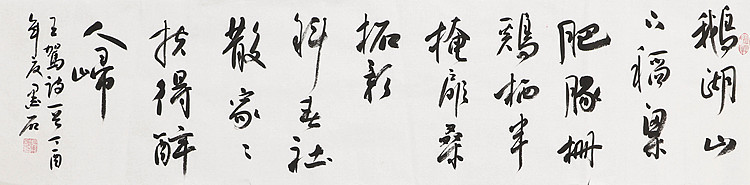 鵝湖山
下稻粱
肥豚柵
鷄栖半
掩扉桑
柘影
斜春社
散家々
扶得醉
人歸
王駕詩一首丁酉
年夏墨石